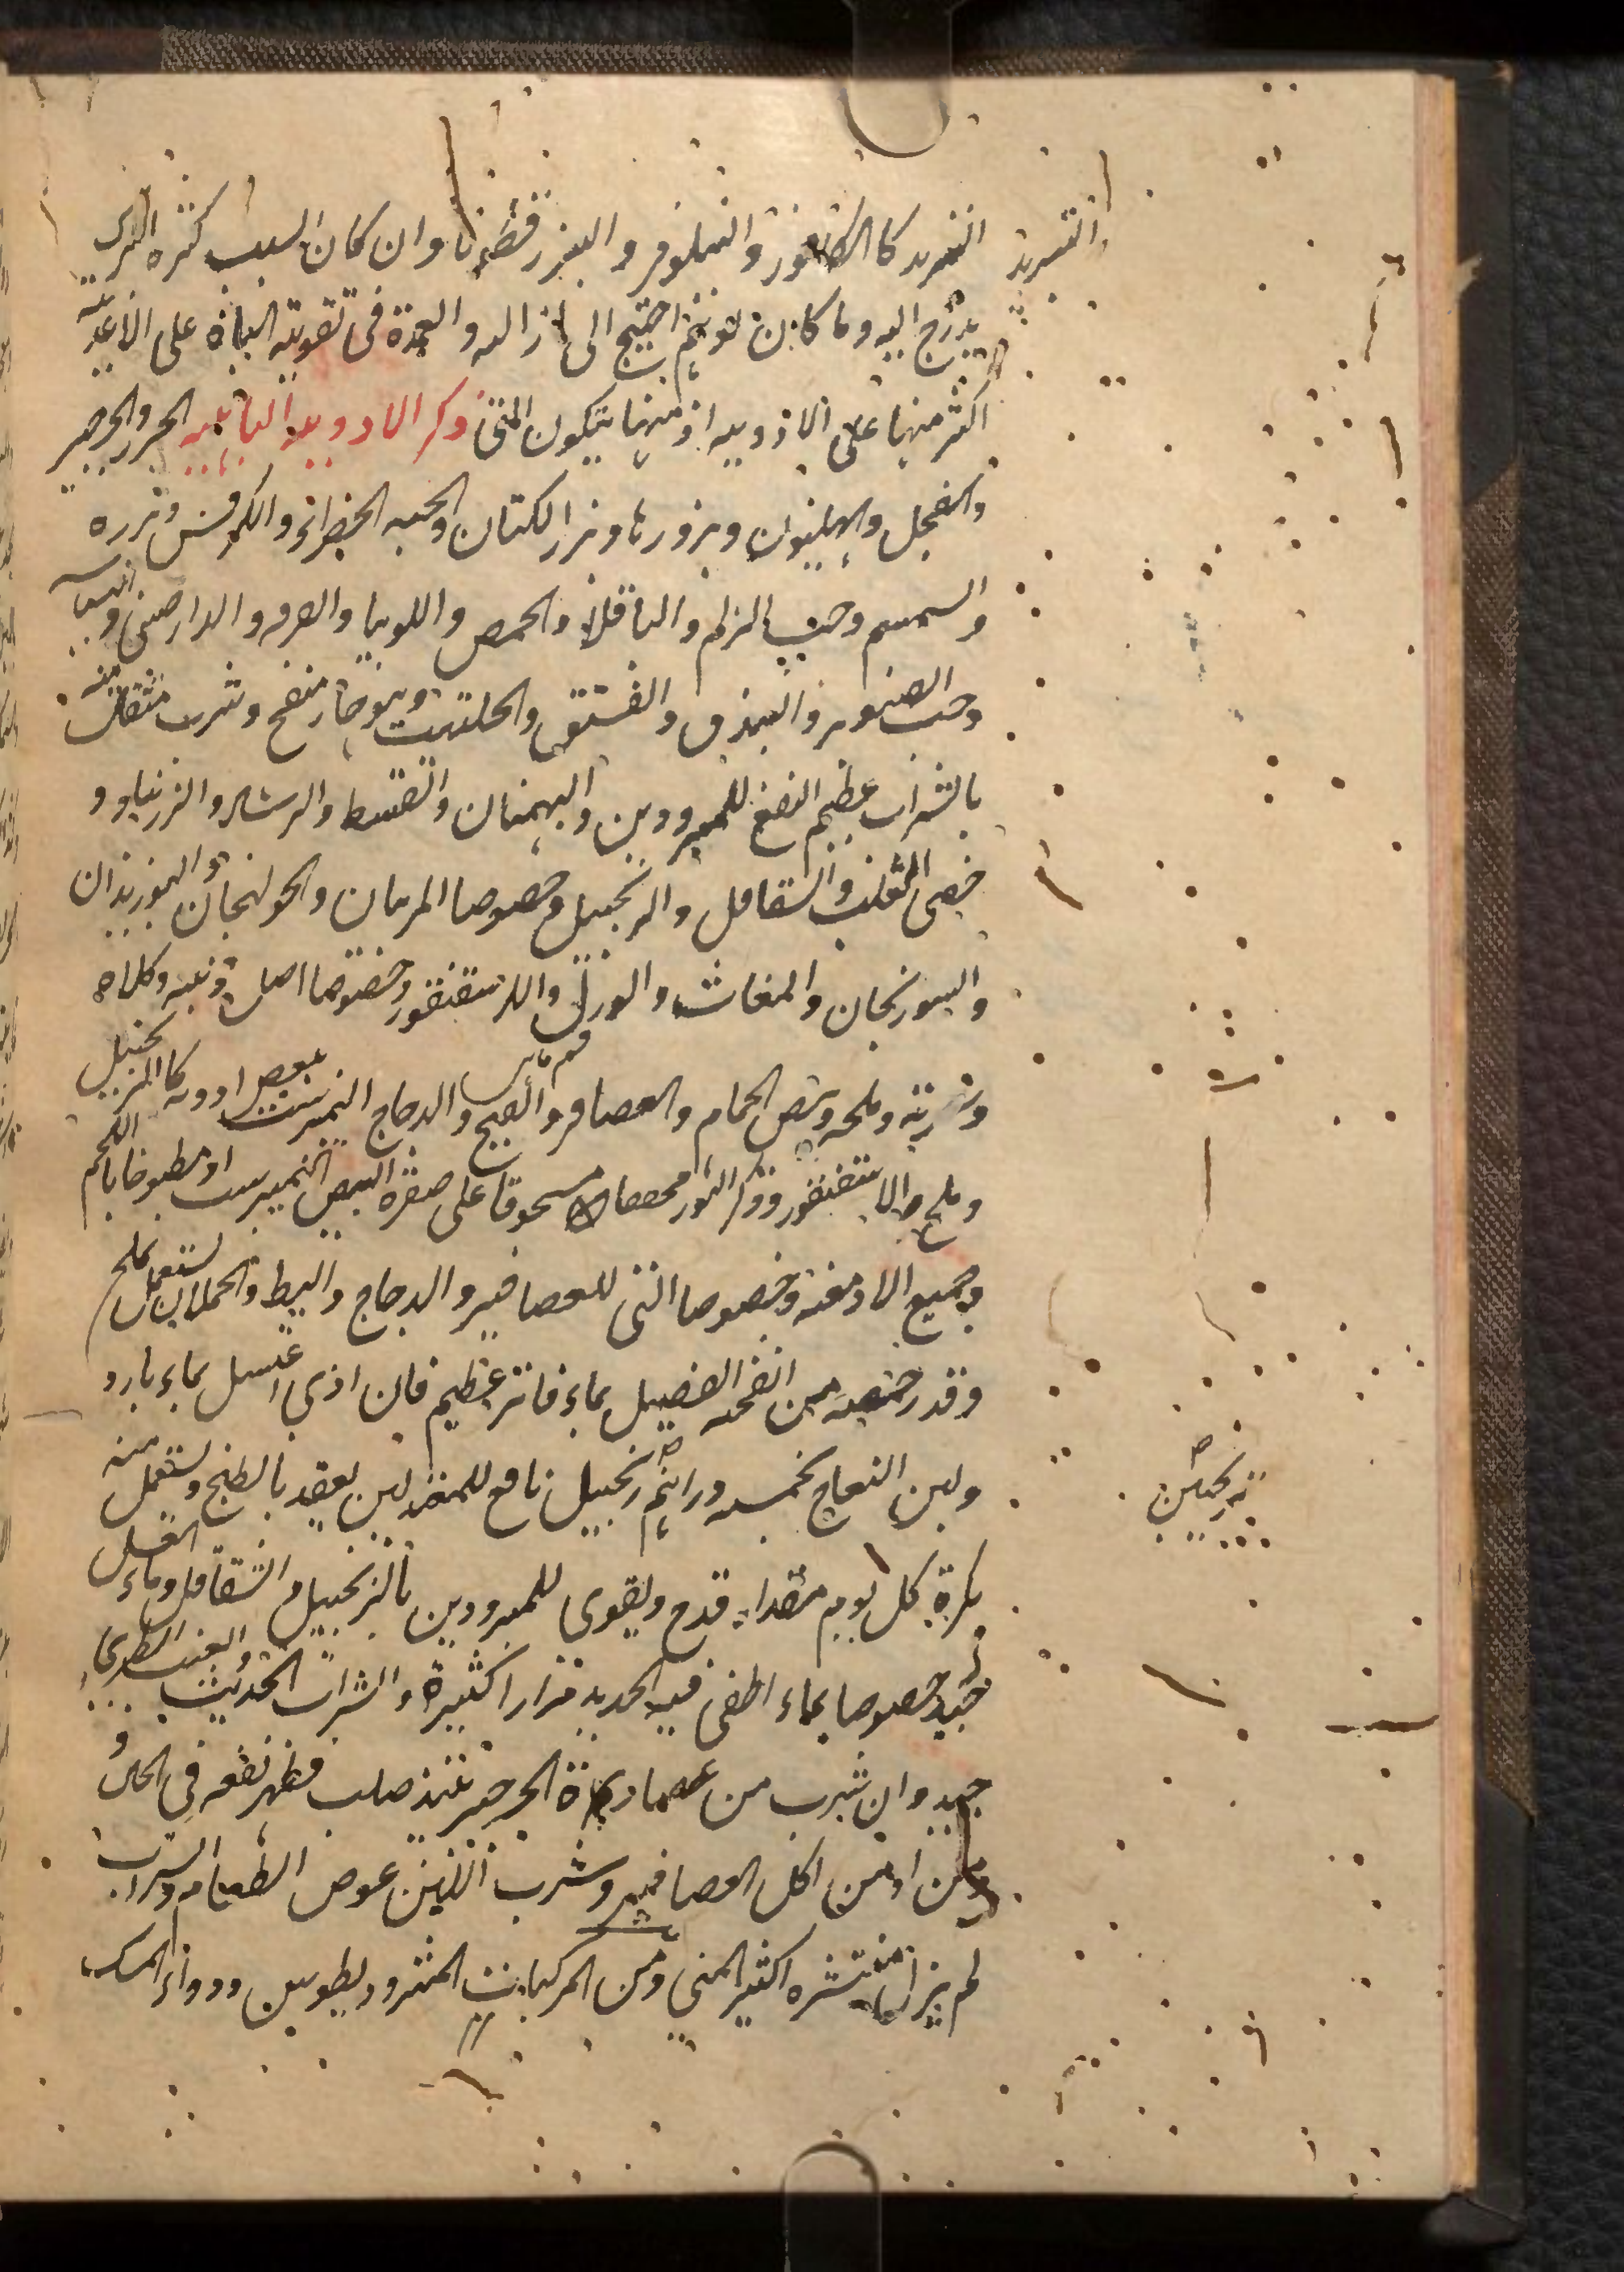 التبريد كالكافور والنيلوفر والبزرقطونا وان كان السبب كثرة الترك
يدرج اليه وما كان لتوهم احتيج الى ازاله والعمدة في تقوية الباه على الاغذيه
اكثر منها على الادويه اذ منها يتكون المني ذكر الادويه البائيه الجزر والجرجير
والفجل والهليون وبزورها وبزر الكتان والحبه الخضراء والكرفس وبزره
والسمسم وحب الزلم والباقلا والحمص واللوبيا والقرفه والدارصيني
وحب الصنوبر والبندق والفستق والحلتيت وهو حار منفخ وشرب مثقال منه
بالشراب عظيم النفع للمبرودين والبهمنان والقسط والرشاد والزرنباد و
خصى الثعلب والشقاقل والزنجبيل وخصوصا المربيان والخولنجان والبوزيدان
والسورنجان والمغاث والورل والاسقنقور وخصوصا اصل ذنبه وكلاه
وسرته وملحه وبيض الحمام والعصافير والقبج والدجاج النيمبرشت ببعض ادويه كالزنجبيل
وملح الاسقنقور وذكر الثور مجففا مسحوقا على صفرة البيض النيمبرشت او مطبوخا باللحم
وجميع الادمغه وخصوصا التي للعصافير والدجاج والبط والحملان يستعمل بملح
وقدر حمصه من انفحه الفصيل بماء فاتر عظيم فان اذى اغتسل بماء بارد
ولبن النعاج بخمسه دراهم زنجبيل نافع للمعتدلين يعقد بالطبخ ويستعمل منه
بكرة كل يوم مقدار قدح ويقوى للمبرودين بالزنجبيل والشقاقل وماء العسل
جيد خصوصا بماء اطفى فيه الحديد مرارا كثيرة والشراب الحديث والعنب الطري
جيد وان شرب من عصارة الجرجير بنبيذ صلب فظهر نفعه في الحال و
من ادمن اكل العصافير وشرب اللبن عوض الطعام والشراب
لم يزل منتشره اكثير المني ومن المركبات المثروديطوس ودواء المسك